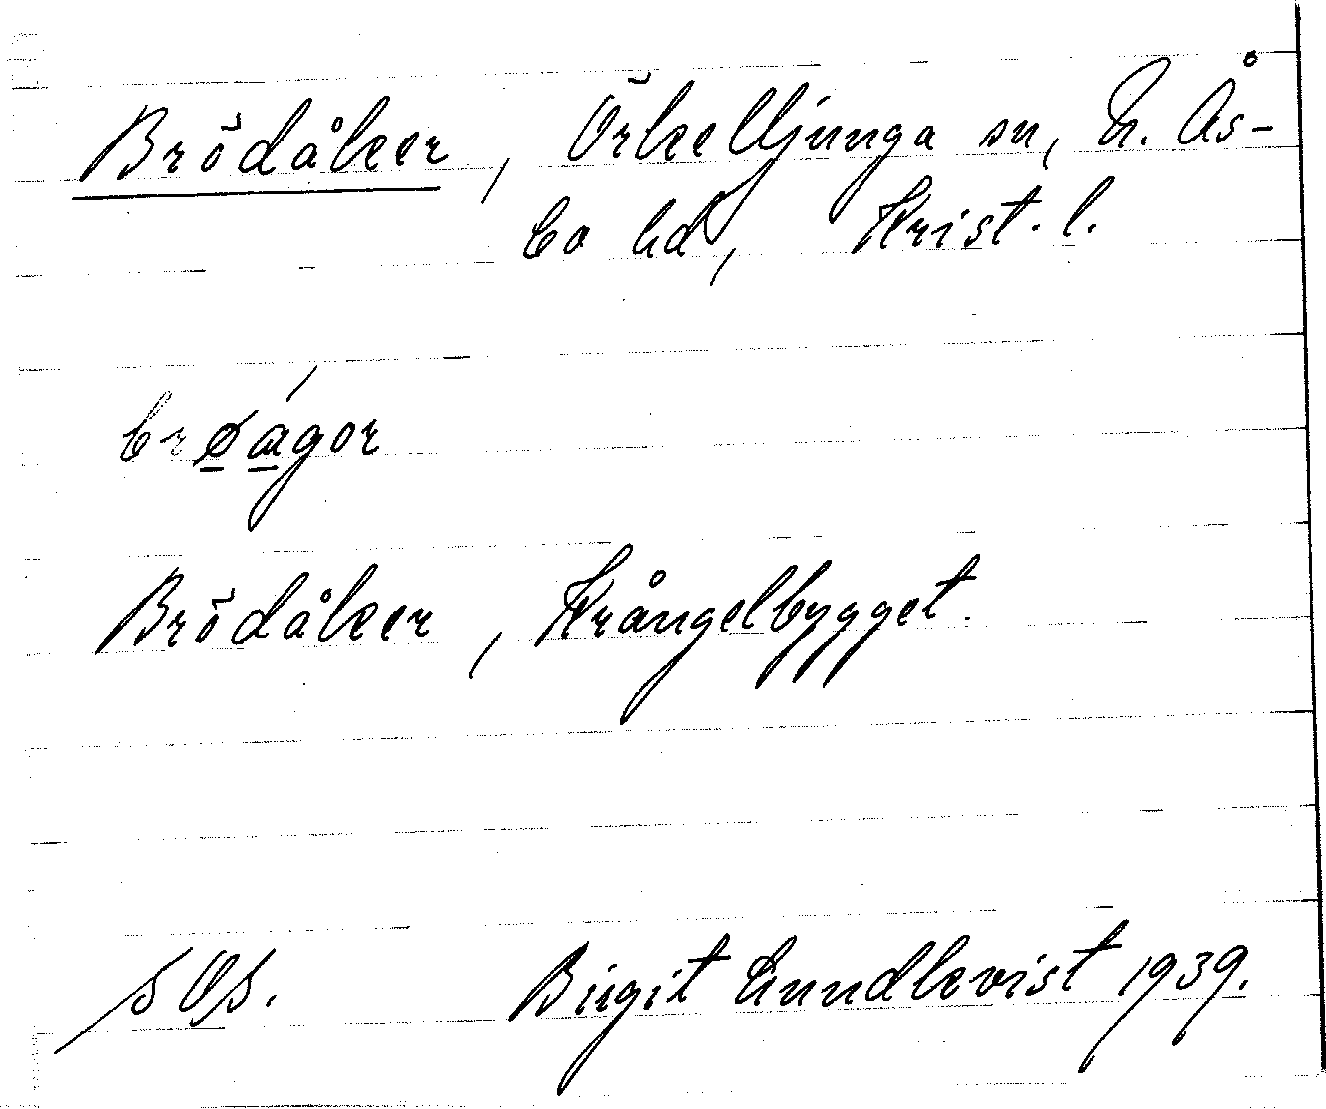 Brödåker, Örkelljunga sn, N. Ås-
bo hd, Krist. l.
brøágor
Brödåker, Krångelbygget.
Birgit Lundkvist 1939.